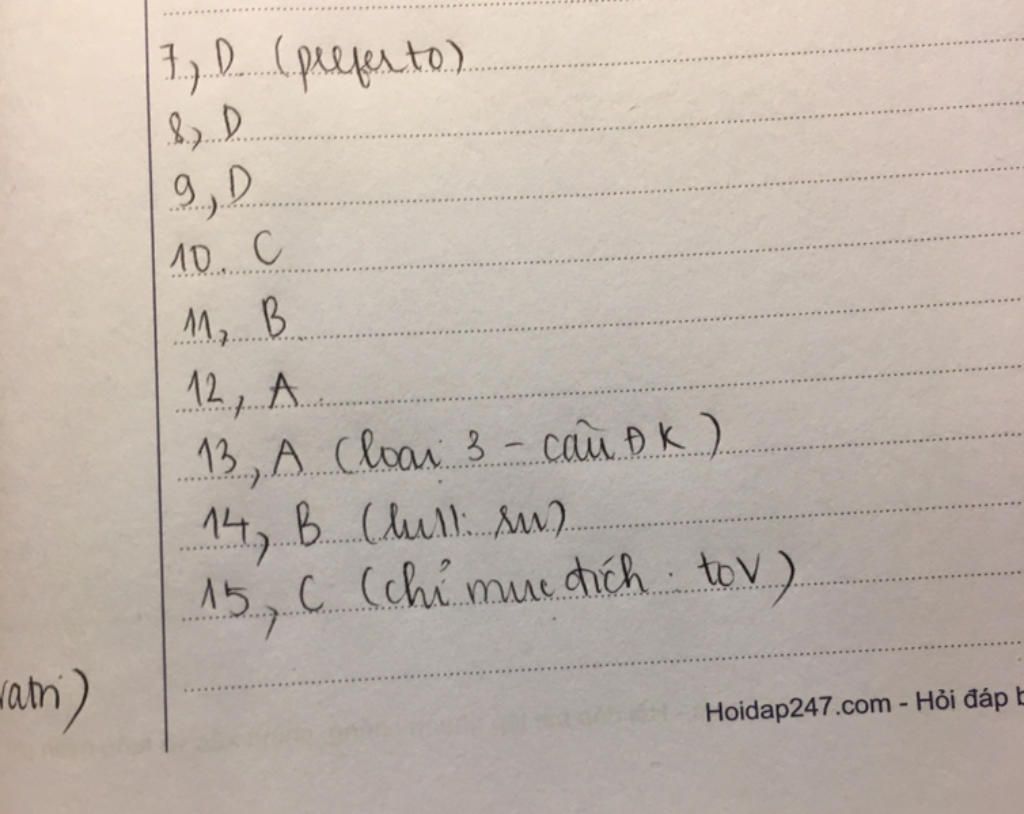 7, D (prefer to)
8, D
9, D
10. C
11, B
12, A
13, A (loại 3 - câu ĐK)
14, B
15, C (chỉ mục đích: to V)
Hoidap247.com - Hỏi đáp b